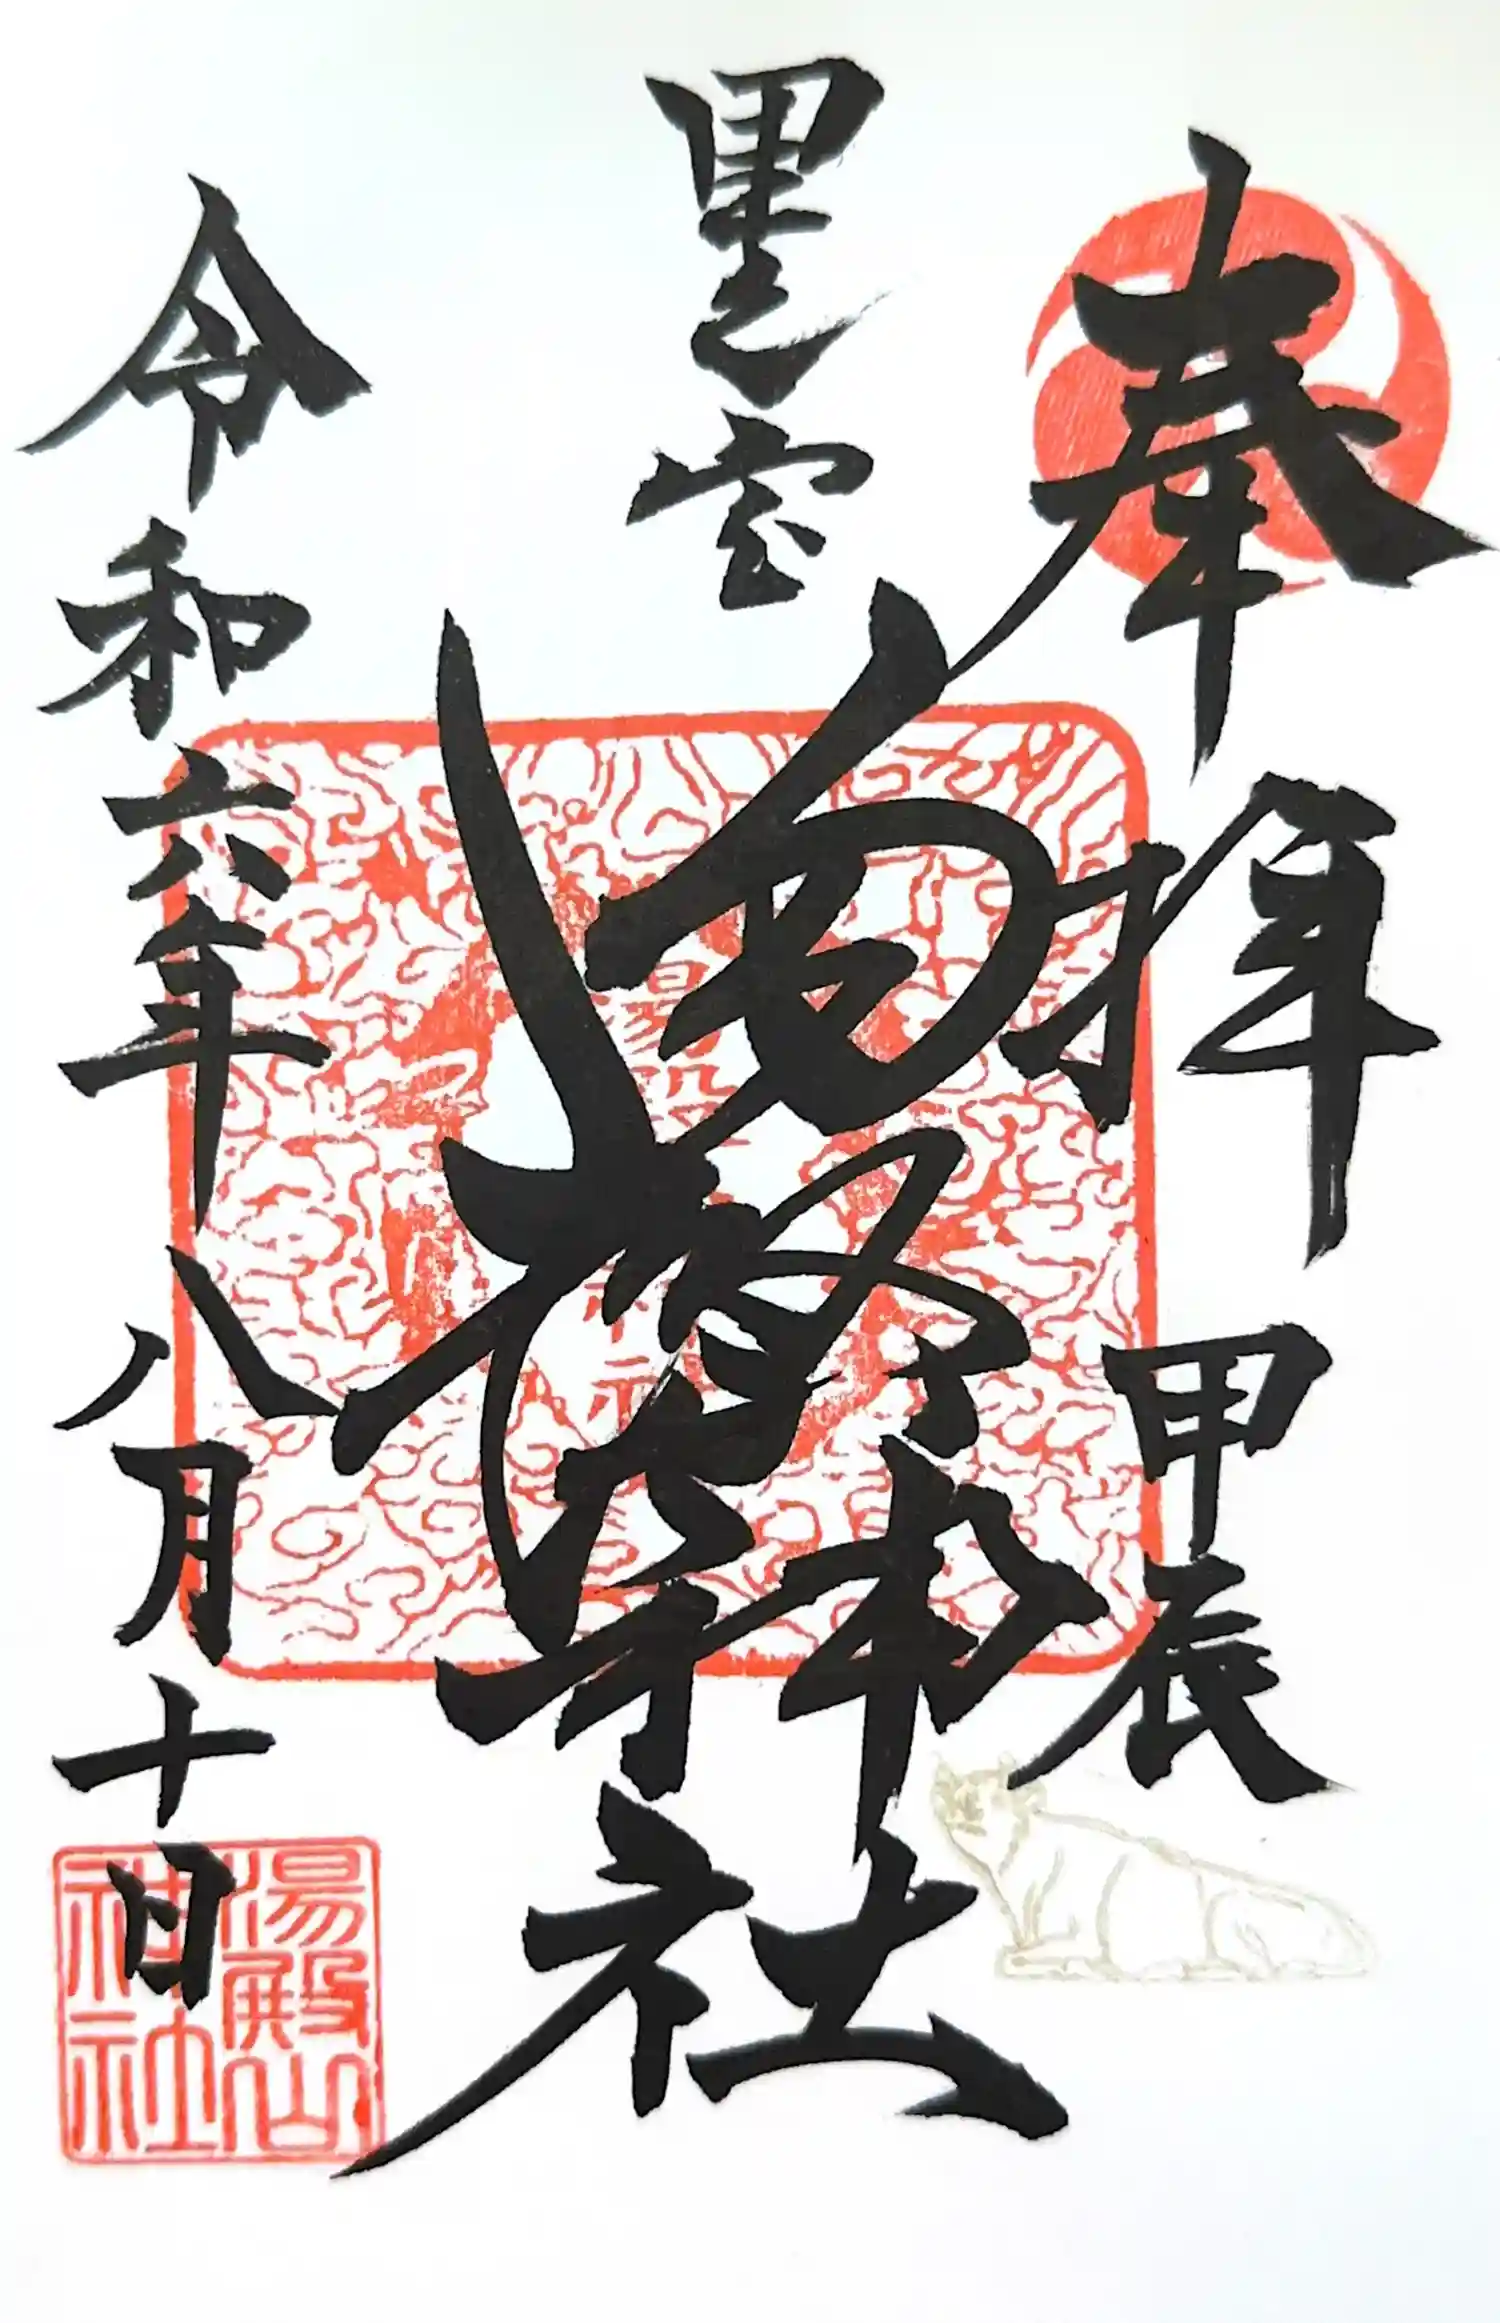 奉拝 甲辰
里之宮
湯殿山神社
令和六年八月十日
湯殿山神社